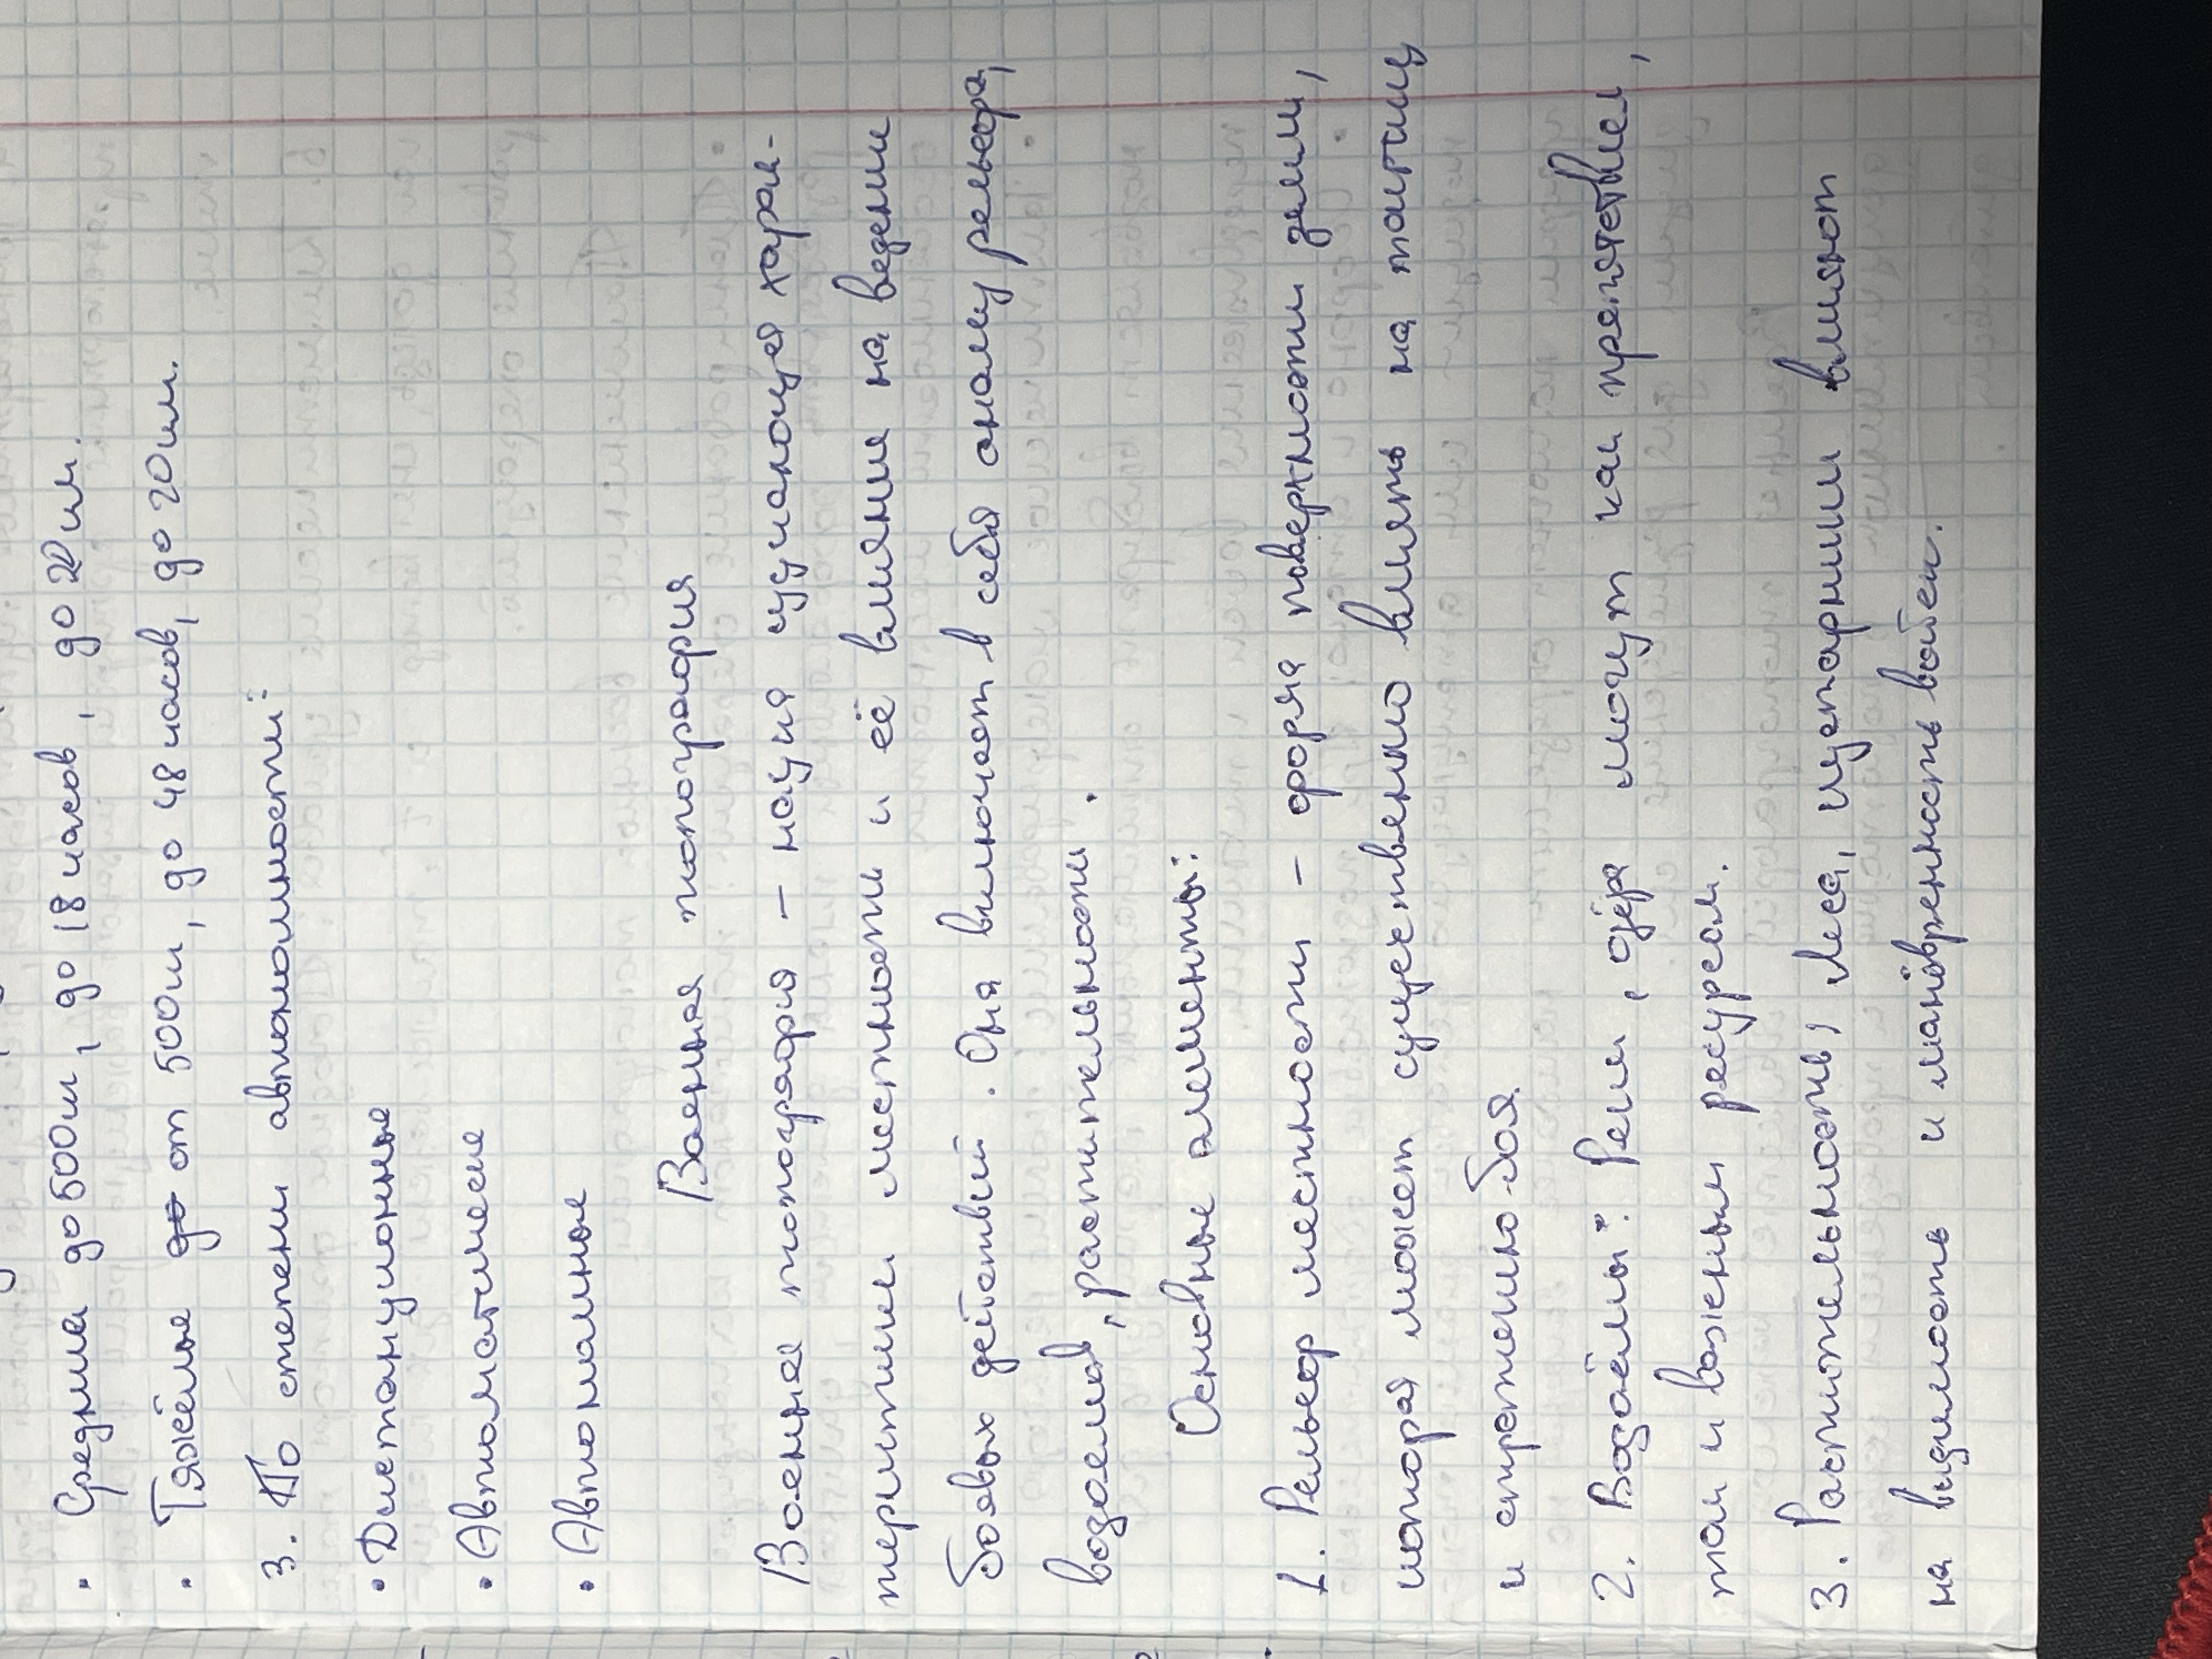 • Средние до 500км, до 18 часов, до 20 км.
• Тяжёлые до от 500км, до 48 часов, до 20км.
3. По степени автономности:
• Дистанционные
• Автоматические
• Автономные
Военная топография
Военная топография – наука изучающая харак-
теристики местности и её влияние на ведение
боевых действий. Она включает в себя анализ рельефа,
водоемов, растительности.
Основные элементы:
1. Рельеф местности – форма поверхности земли,
которая может существенно влиять на тактику
и стратегию боя
2. Водоёмы: Реки, озёра могут как препятствием,
так и важным ресурсом.
3. Растительность, Леса, кустарники влияют
на видимость и манёвренность войск.